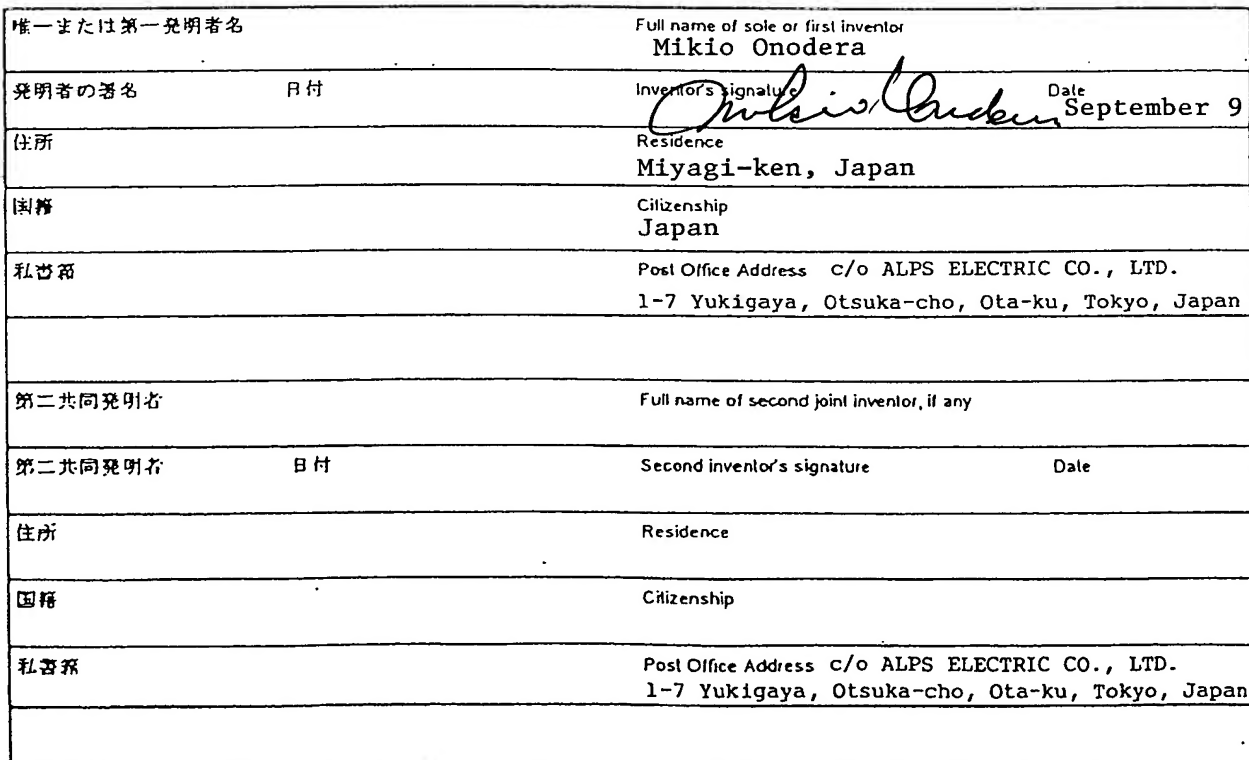 唯一または第一発明者名
Full name of sole or first inventor
Mikio Onodera
発明者の署名 日付
Inventor's signature Date
Mikio Onodera September 9
住所
Residence
Miyagi-ken, Japan
国籍
Citizenship
Japan
私書箱
Post Office Address c/o ALPS ELECTRIC CO., LTD.
1-7 Yukigaya, Otsuka-cho, Ota-ku, Tokyo, Japan
第二共同発明者
Full name of second joint inventor, if any
第二共同発明者 日付
Second inventor's signature Date
住所
Residence
国籍
Citizenship
私書箱
Post Office Address c/o ALPS ELECTRIC CO., LTD.
1-7 Yukigaya, Otsuka-cho, Ota-ku, Tokyo, Japan